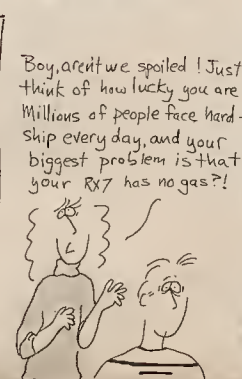 Boy, aren't we spoiled! Just
think of how lucky you are
Millions of people face hard-
ship every day, and your
biggest problem is that
your RX7 has no gas?!